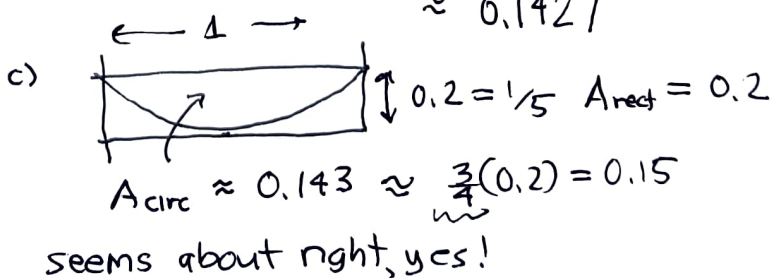 ≈ 0.1427
← 1 →
c)
0.2 = 1/5 Arect = 0.2
Acirc ≈ 0.143 ≈ 3/4(0.2) = 0.15
seems about right, yes!